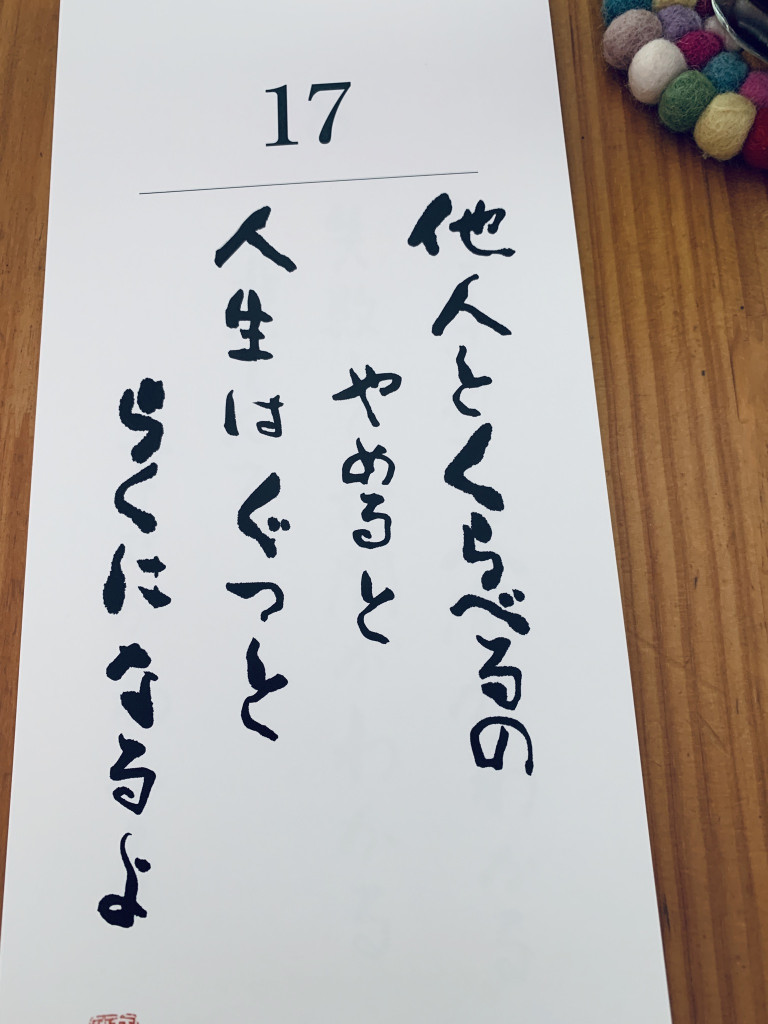 17
他人とくらべるの
やめると
人生はぐっと
らくになるよ